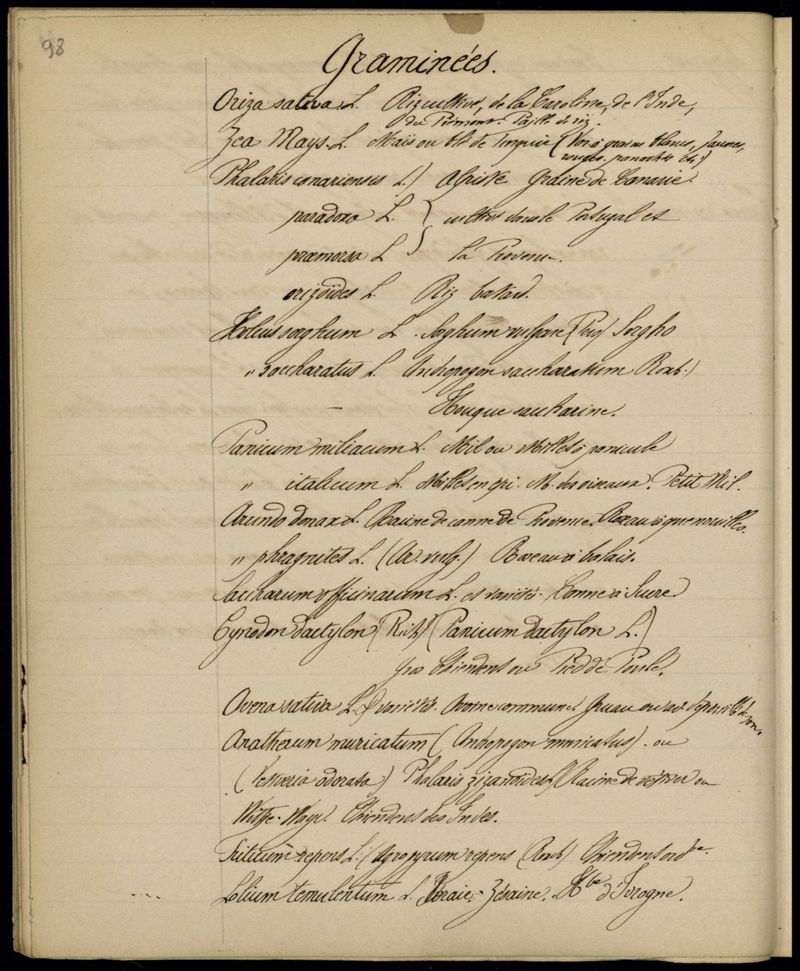 98
Graminées.
Oriza sativa L. Riz cultivé, de la Caroline, de l'Inde,
du Piémont. Paille de riz.
Zea Mays. L. Maïs ou blé de Turquie (Var à grains blancs, jaunes,
rouges, panachés &c)
Phalaris canariensis L.) Alpiste Graine de Canarie.
paradoxa L. } cultivés dans le Portugal et
præmorsa L } la Provence.
orizoïdes L. Riz batard.
Holcus sorghum L. Sorghum vulgare (Pers) Sorgho
" saccharatus L Andropogon saccharatum Roxb.)
— Houque saccharine.
Panicum miliaceum L. Mil ou Millet à panicule
" italicum L. Millet en épi. M. des oiseaux. Petit Mil.
Arundo donax L. Racine de canne de Provence. Roseau à quenouilles.
" phragmites L. (Ar. vulg.) Roseau à balais.
Saccharum officinarum L. et variétés. Canne à Sucre
Cynodon dactylon (Rich) (Panicum dactylon L.)
Gros Chiendent ou Pied de Poule.
Avena sativa L. & variétés. Avoine commune. Gruau ou
Anatherum muricatum (Andropogon muricatus). ou
(Vetiveria odorata) Phalaris zizanoïdes L) Racine de vétiver ou
Chiendent des Indes.
Triticum repens L. (Agropyrum repens (Roxb) Chiendent ord.re
Lolium temulentum L. Ivraie - Zizanie. H.be d'Ivrogne.